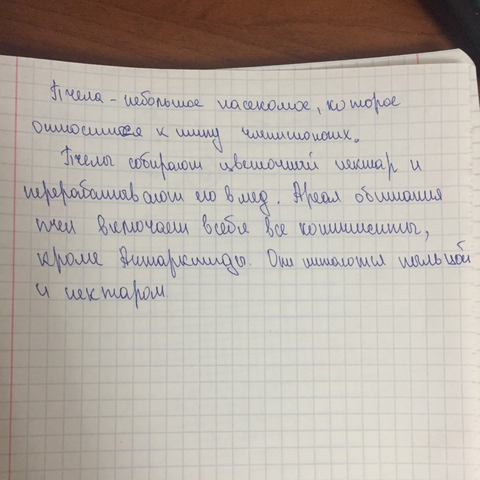 Пчела - небольшое насекомое, которое
относится к типу членистоногих.
Пчелы собирают цветочный нектар и
перерабатывают его в мед. Ареал обитания
пчел включает в себя все континенты,
кроме Антарктиды. Они питаются пыльцой
и нектаром.